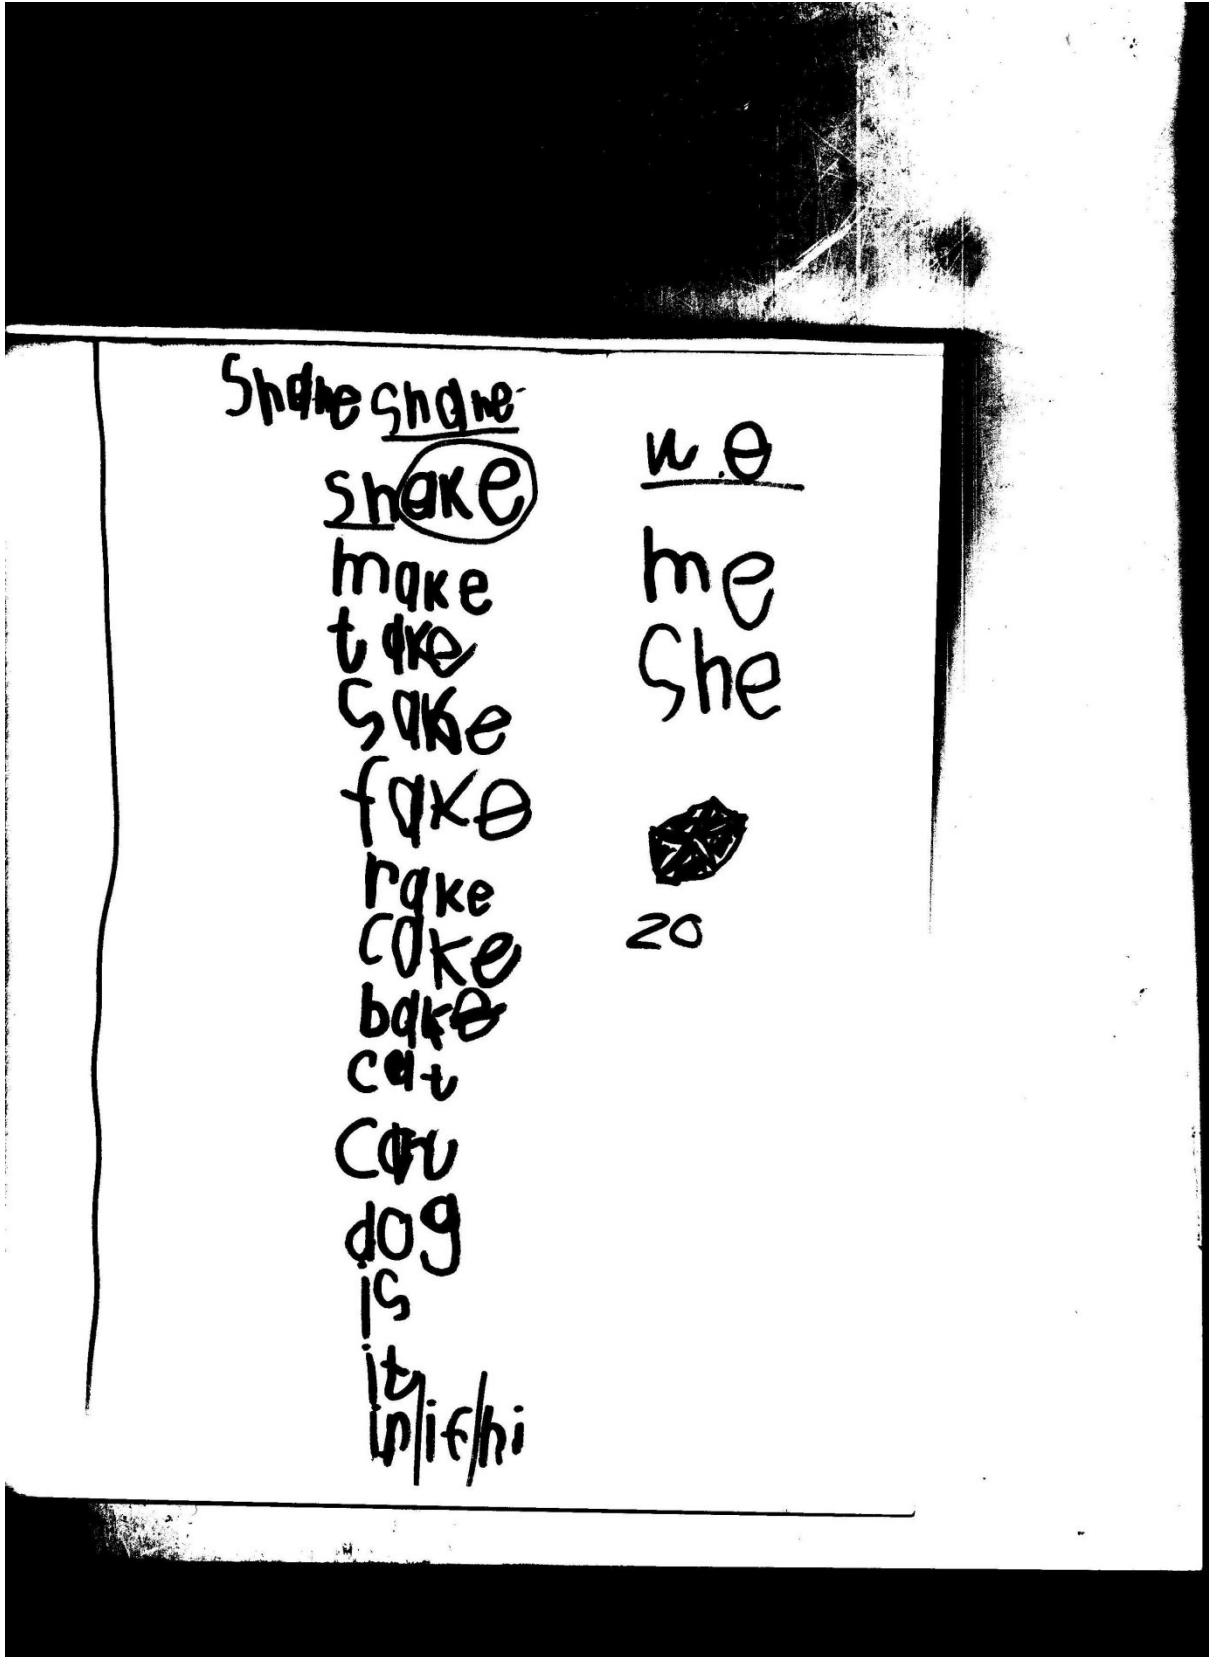 Shane Shane
shake
make
take
sake
fake
rake
cake
bake
cat
car
dog
is
it
in/if/hi
we
me
She
20